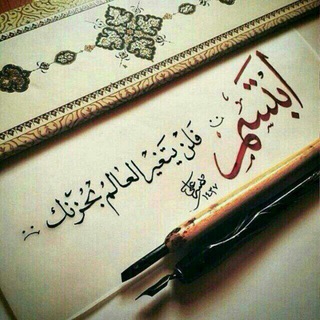 ابتسم
فلن يتغير العالم بحزنك
١٤٣٧